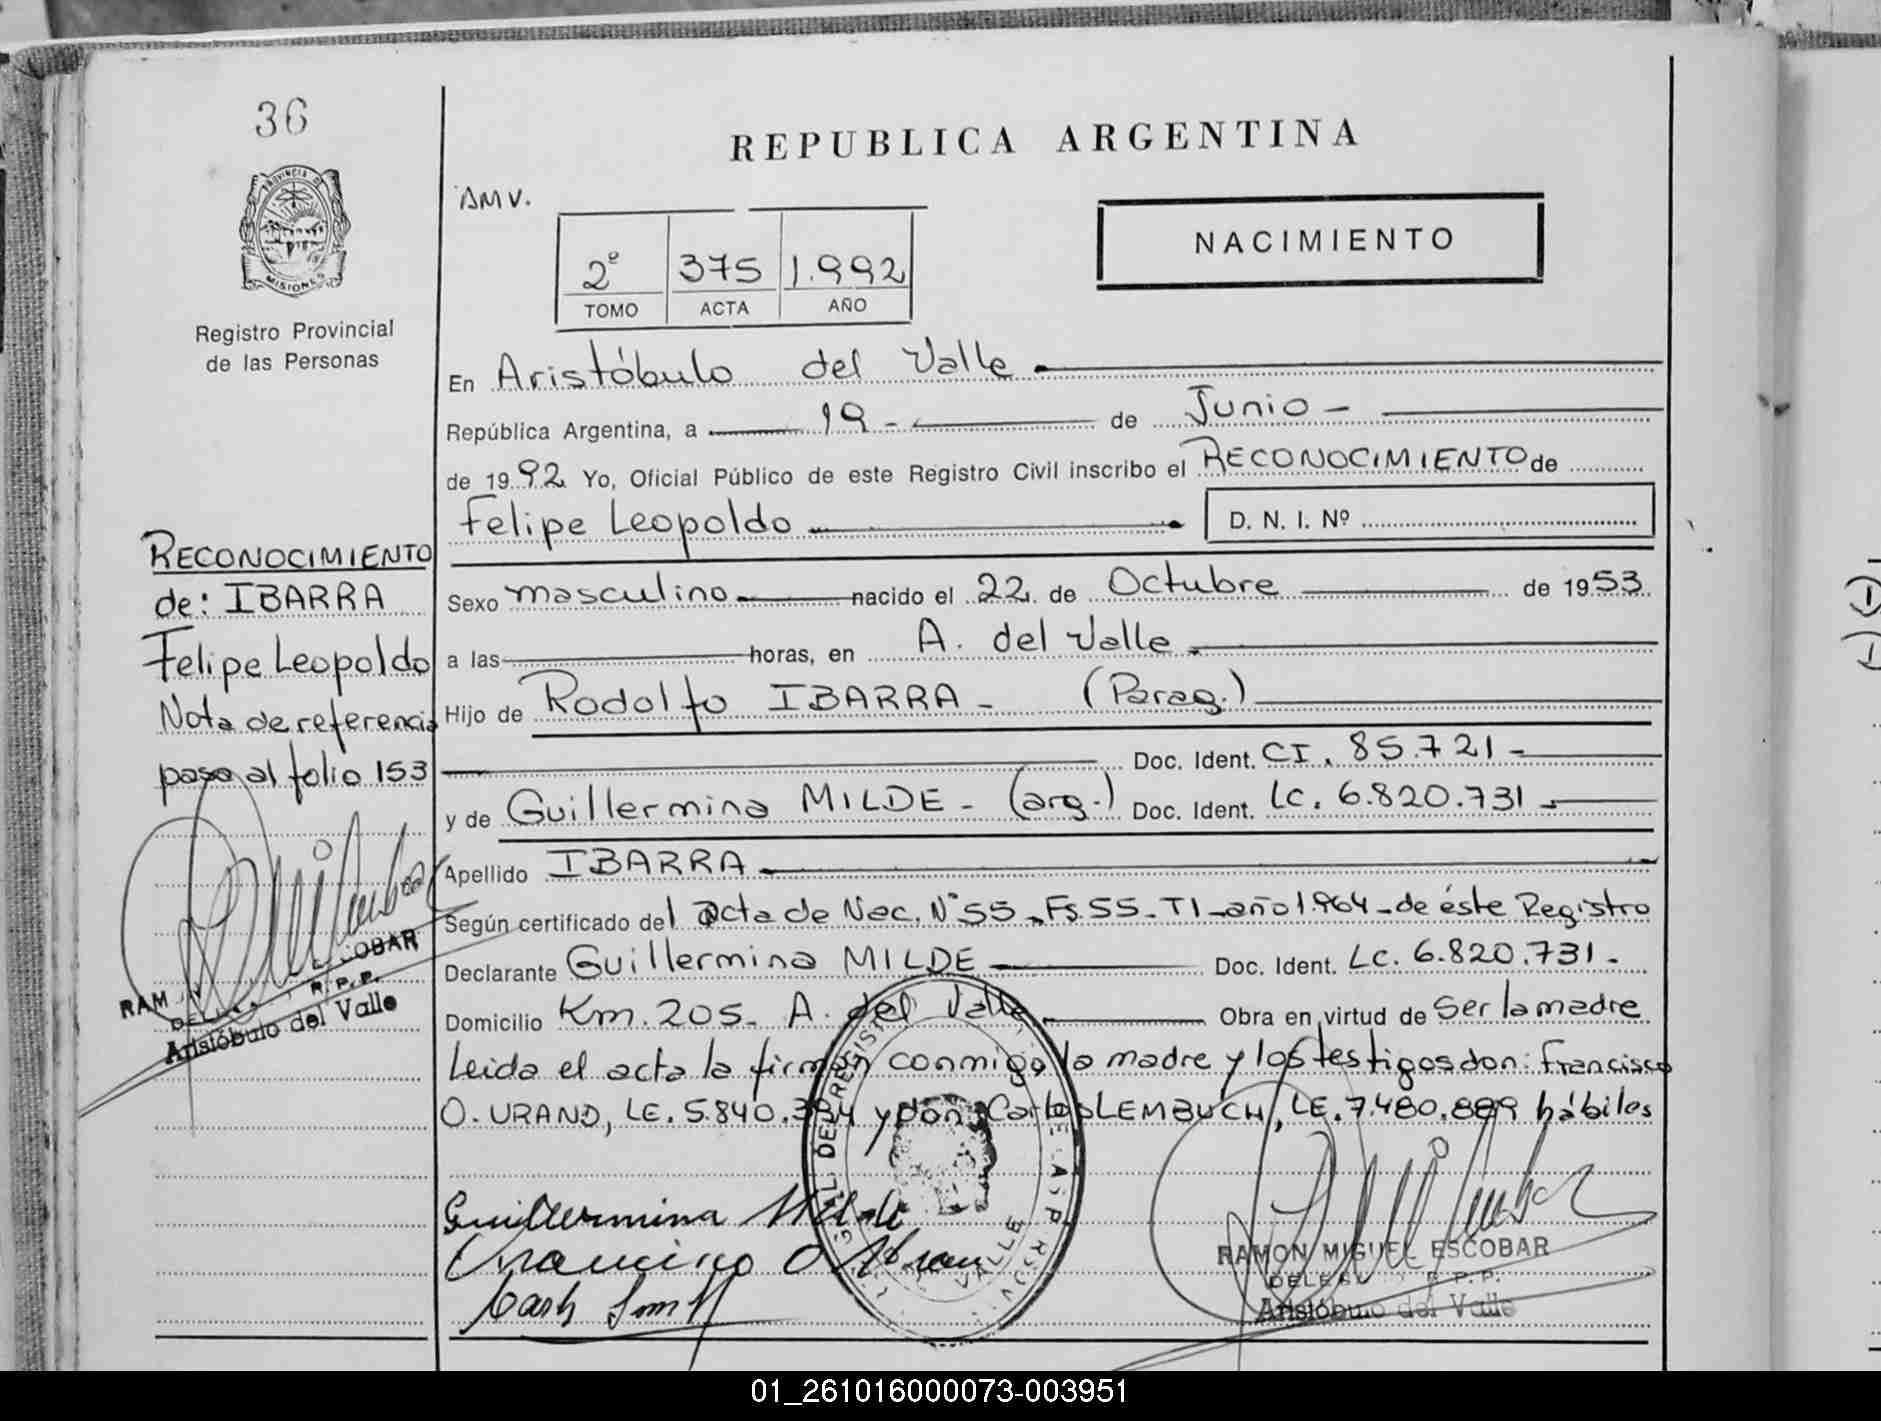 36
PROVINCIA DE
MISIONES
Registro Provincial
de las Personas
RECONOCIMIENTO
de: IBARRA
Felipe Leopoldo
Nota de referencia
pasa al folio 153
OBAR
RAM
R. P. P.
Aristóbulo del Valle
REPUBLICA ARGENTINA
AMV.
NACIMIENTO
2º 375 1.992
TOMO ACTA AÑO
En Aristóbulo del Valle
República Argentina, a 19 - de Junio -
de 1992 Yo, Oficial Público de este Registro Civil inscribo el RECONOCIMIENTO de
Felipe Leopoldo D. N. I. Nº
Sexo masculino nacido el 22 de Octubre de 1953
a las horas, en A. del Valle
Hijo de Rodolfo IBARRA - (Parag.)
Doc. Ident. CI. 85.721 -
y de Guillermina MILDE - (arg.) Doc. Ident. LC. 6.820.731 -
Apellido IBARRA
Según certificado del acta de Nac. N° 55 - Fs. 55 - T1 - año 1.964 - de éste Registro
Declarante Guillermina MILDE Doc. Ident. LC. 6.820.731 -
Domicilio Km. 205 - A. del Valle Obra en virtud de Ser la madre
Leida el acta la firman conmigo la madre y los testigos don: Francisco
O. URAND, LE. 5.840. y don Carlos LEMBUCH, LE. 7.480.889 hábiles
Guillermina Milde
Francisco O
RAMON MIGUEL ESCOBAR
R. P. P.
Aristóbulo del Valle
01_261016000073-003951